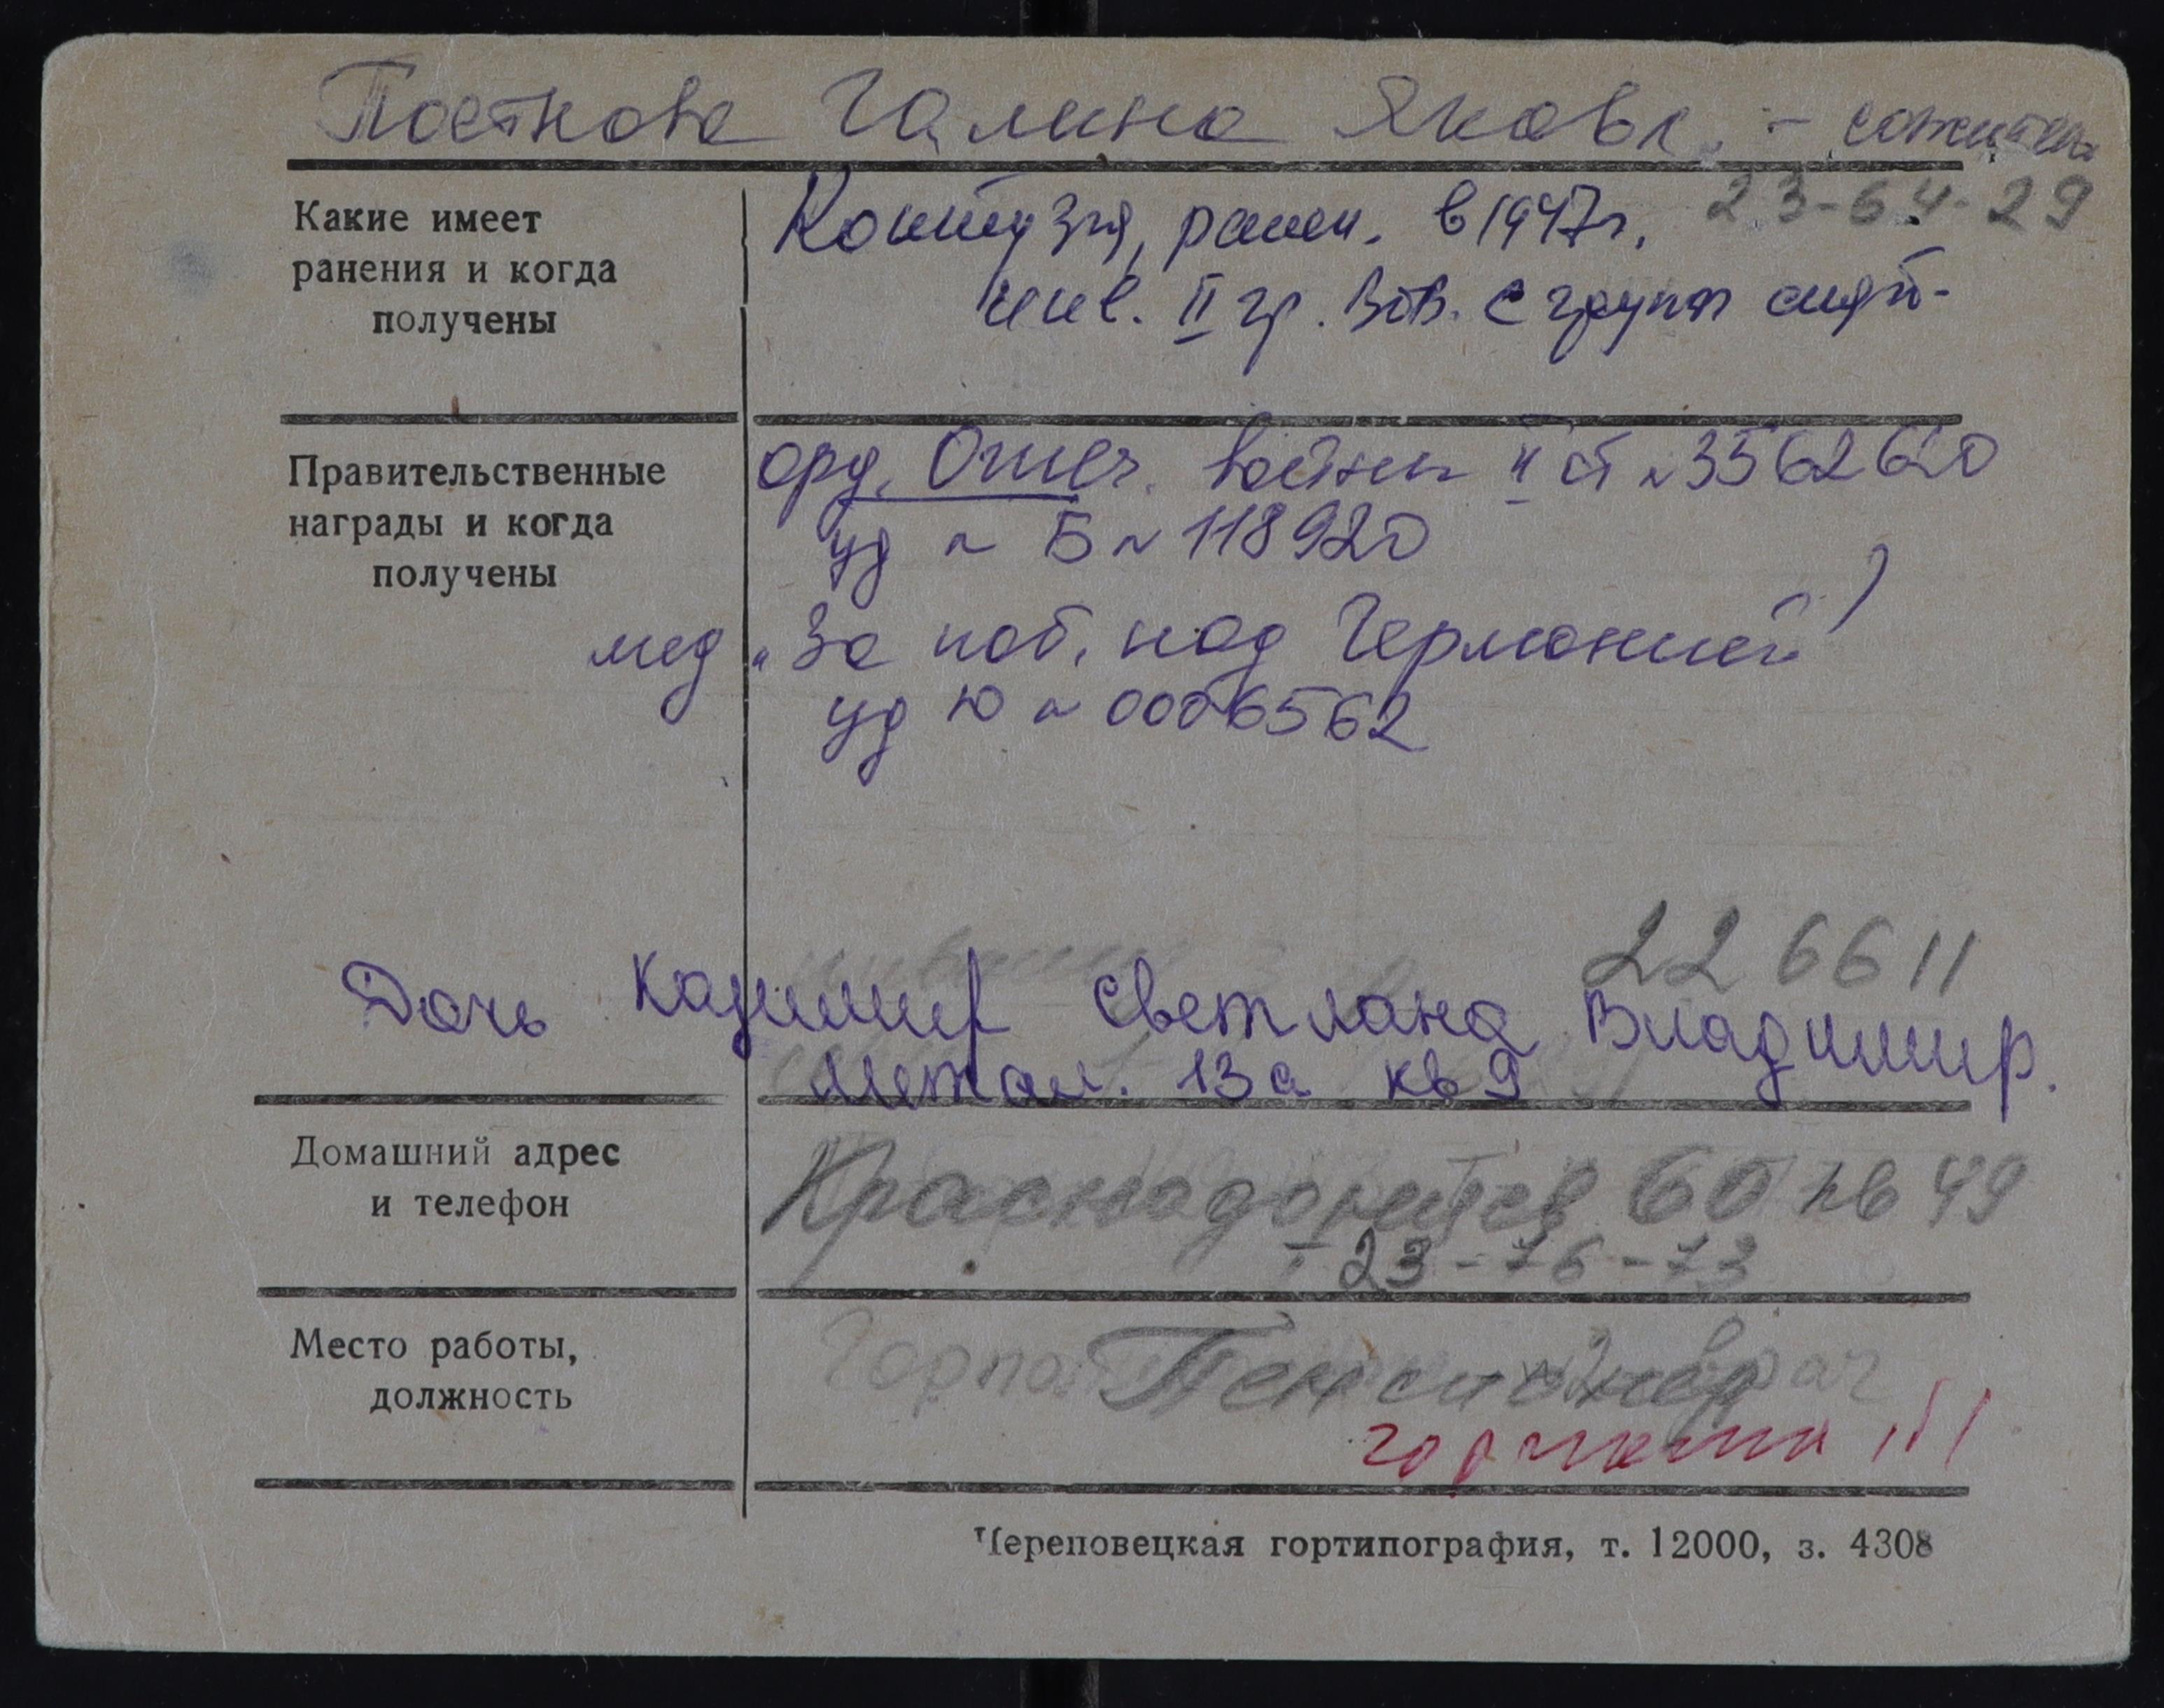 Постнова Галина Яковл. - сожител
23-64-29
Какие имеет
ранения и когда
получены
Контузия, ранен. в 1947г.
инв. II гр. ВОВ. с группы
Правительственные
награды и когда
получены
орд. Отеч. войны II ст № 3562620
уд № Б № 118920
мед „За поб. над Германией"
уд Ю № 0006562
22 66 11
Дочь Казимир Светлана Владимир.
Метал. 13а кв 9
Домашний адрес
и телефон
Краснодонцев 60 кв 49
т 23-76-73
Место работы,
должность
Пенсионер
врач
Череповецкая гортипография, т. 12000, з. 4308